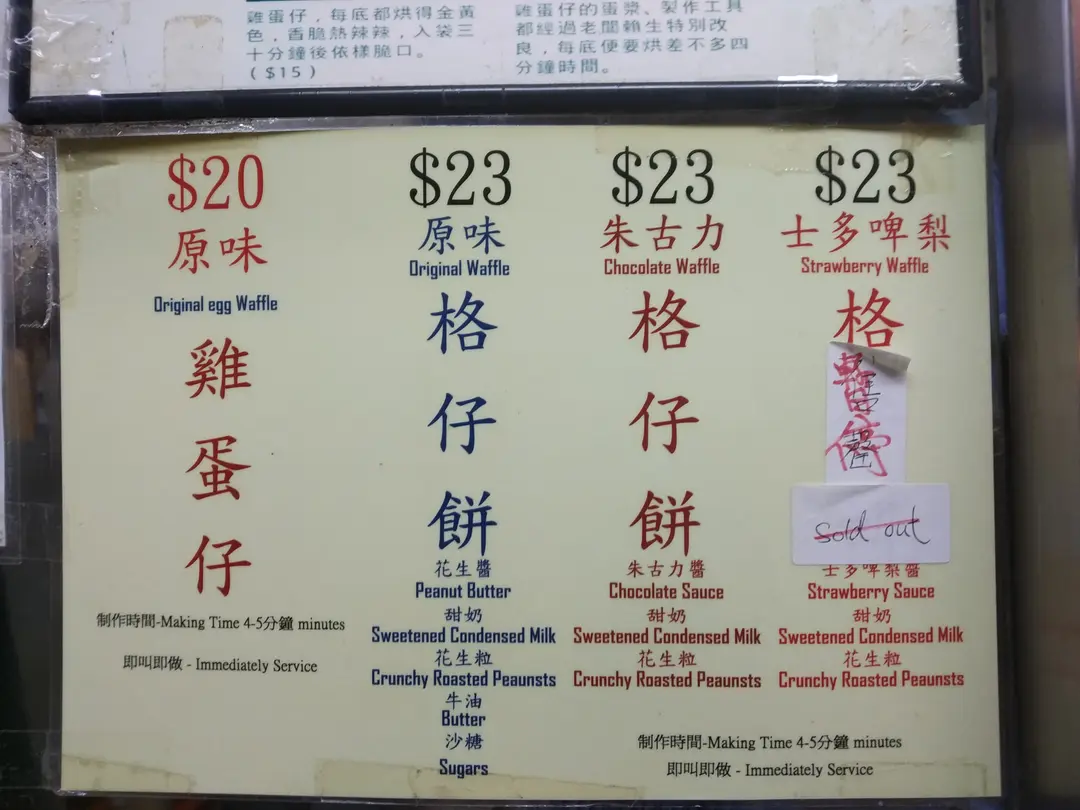 雞蛋仔，每底都烘得金黃
色，香脆熱辣辣，入袋三
十分鐘後依樣脆口。
($15)
雞蛋仔的蛋漿、製作工具
都經過老闆賴生特別改
良，每底便要烘差不多四
分鐘時間。
$20
原味
Original egg Waffle
雞
蛋
仔
制作時間-Making Time 4-5分鐘 minutes
即叫即做 - Immediately Service
$23
原味
Original Waffle
格
仔
餅
花生醬
Peanut Butter
甜奶
Sweetened Condensed Milk
花生粒
Crunchy Roasted Peaunsts
牛油
Butter
沙糖
Sugars
$23
朱古力
Chocolate Waffle
格
仔
餅
朱古力醬
Chocolate Sauce
甜奶
Sweetened Condensed Milk
花生粒
Crunchy Roasted Peaunsts
$23
士多啤梨
Strawberry Waffle
格
暫
停
sold out
士多啤梨醬
Strawberry Sauce
甜奶
Sweetened Condensed Milk
花生粒
Crunchy Roasted Peaunsts
制作時間-Making Time 4-5分鐘 minutes
即叫即做 - Immediately Service